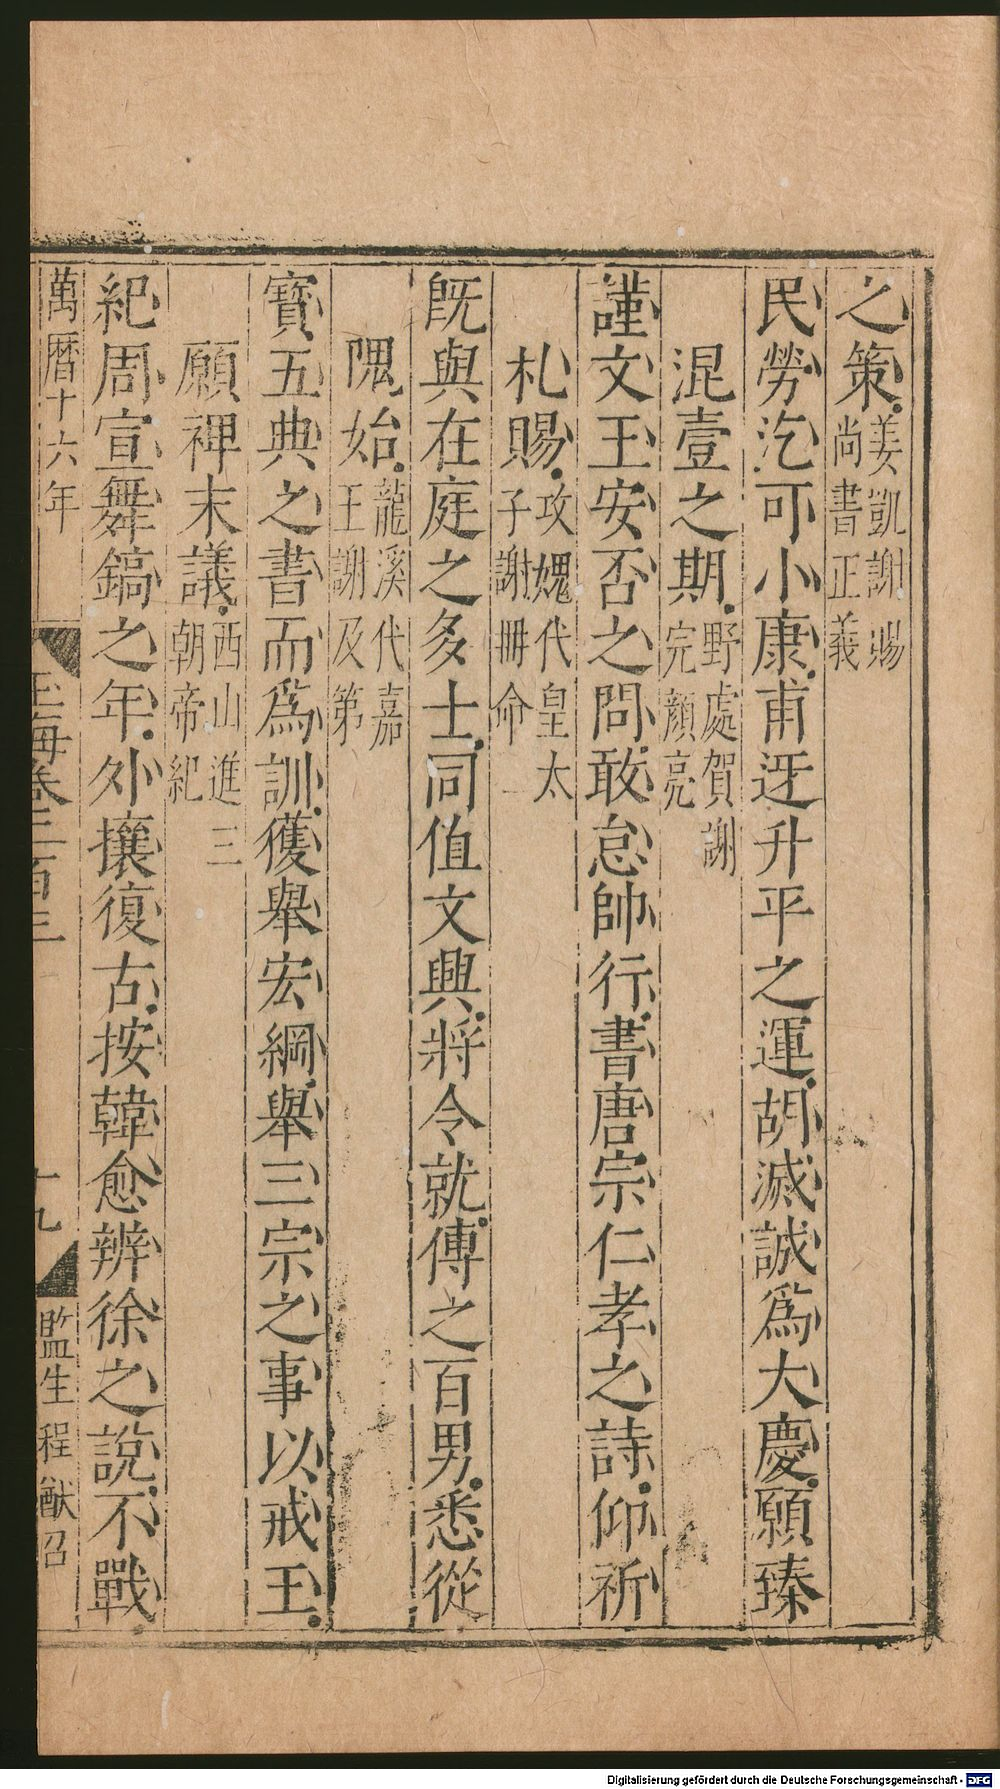 之策姜凱謝賜尚書正義
民勞汔可小康甫迓升平之運胡滅誠爲大慶願臻
混壹之期野處賀謝完顔亮
謹文王安否之問敢怠帥行書唐宗仁孝之詩仰祈
札賜攻媿代皇太子謝冊命
旣與在庭之多士同值文興將令就傅之百男悉從
隗始龍溪代嘉王謝及第
寶五典之書而爲訓獲舉宏綱舉三宗之事以戒王
願裨末議西山進三朝帝紀
紀周宣舞鎬之年外攘復古按韓愈辨徐之說不戰
萬曆十六年
玉海卷二百三
十九
監生程猷召
Digitalisierung gefördert durch die Deutsche Forschungsgemeinschaft - DFG